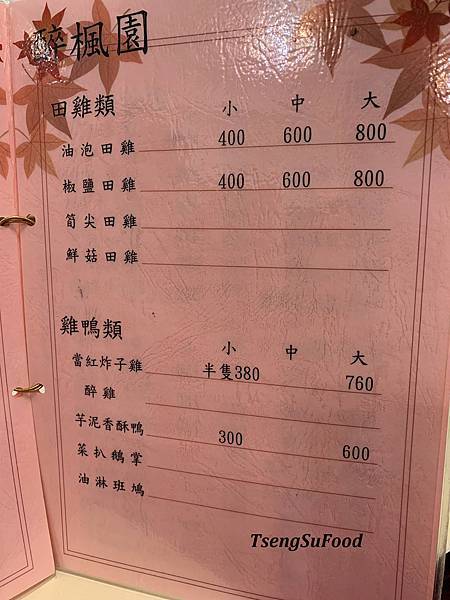 醉楓園
田雞類 小 中 大
油泡田雞 400 600 800
椒鹽田雞 400 600 800
筍尖田雞
鮮菇田雞
雞鴨類 小 中 大
當紅炸子雞 半隻380 760
醉雞
芋泥香酥鴨 300 600
菜扒鵝掌
油淋班鳩
TsengSuFood